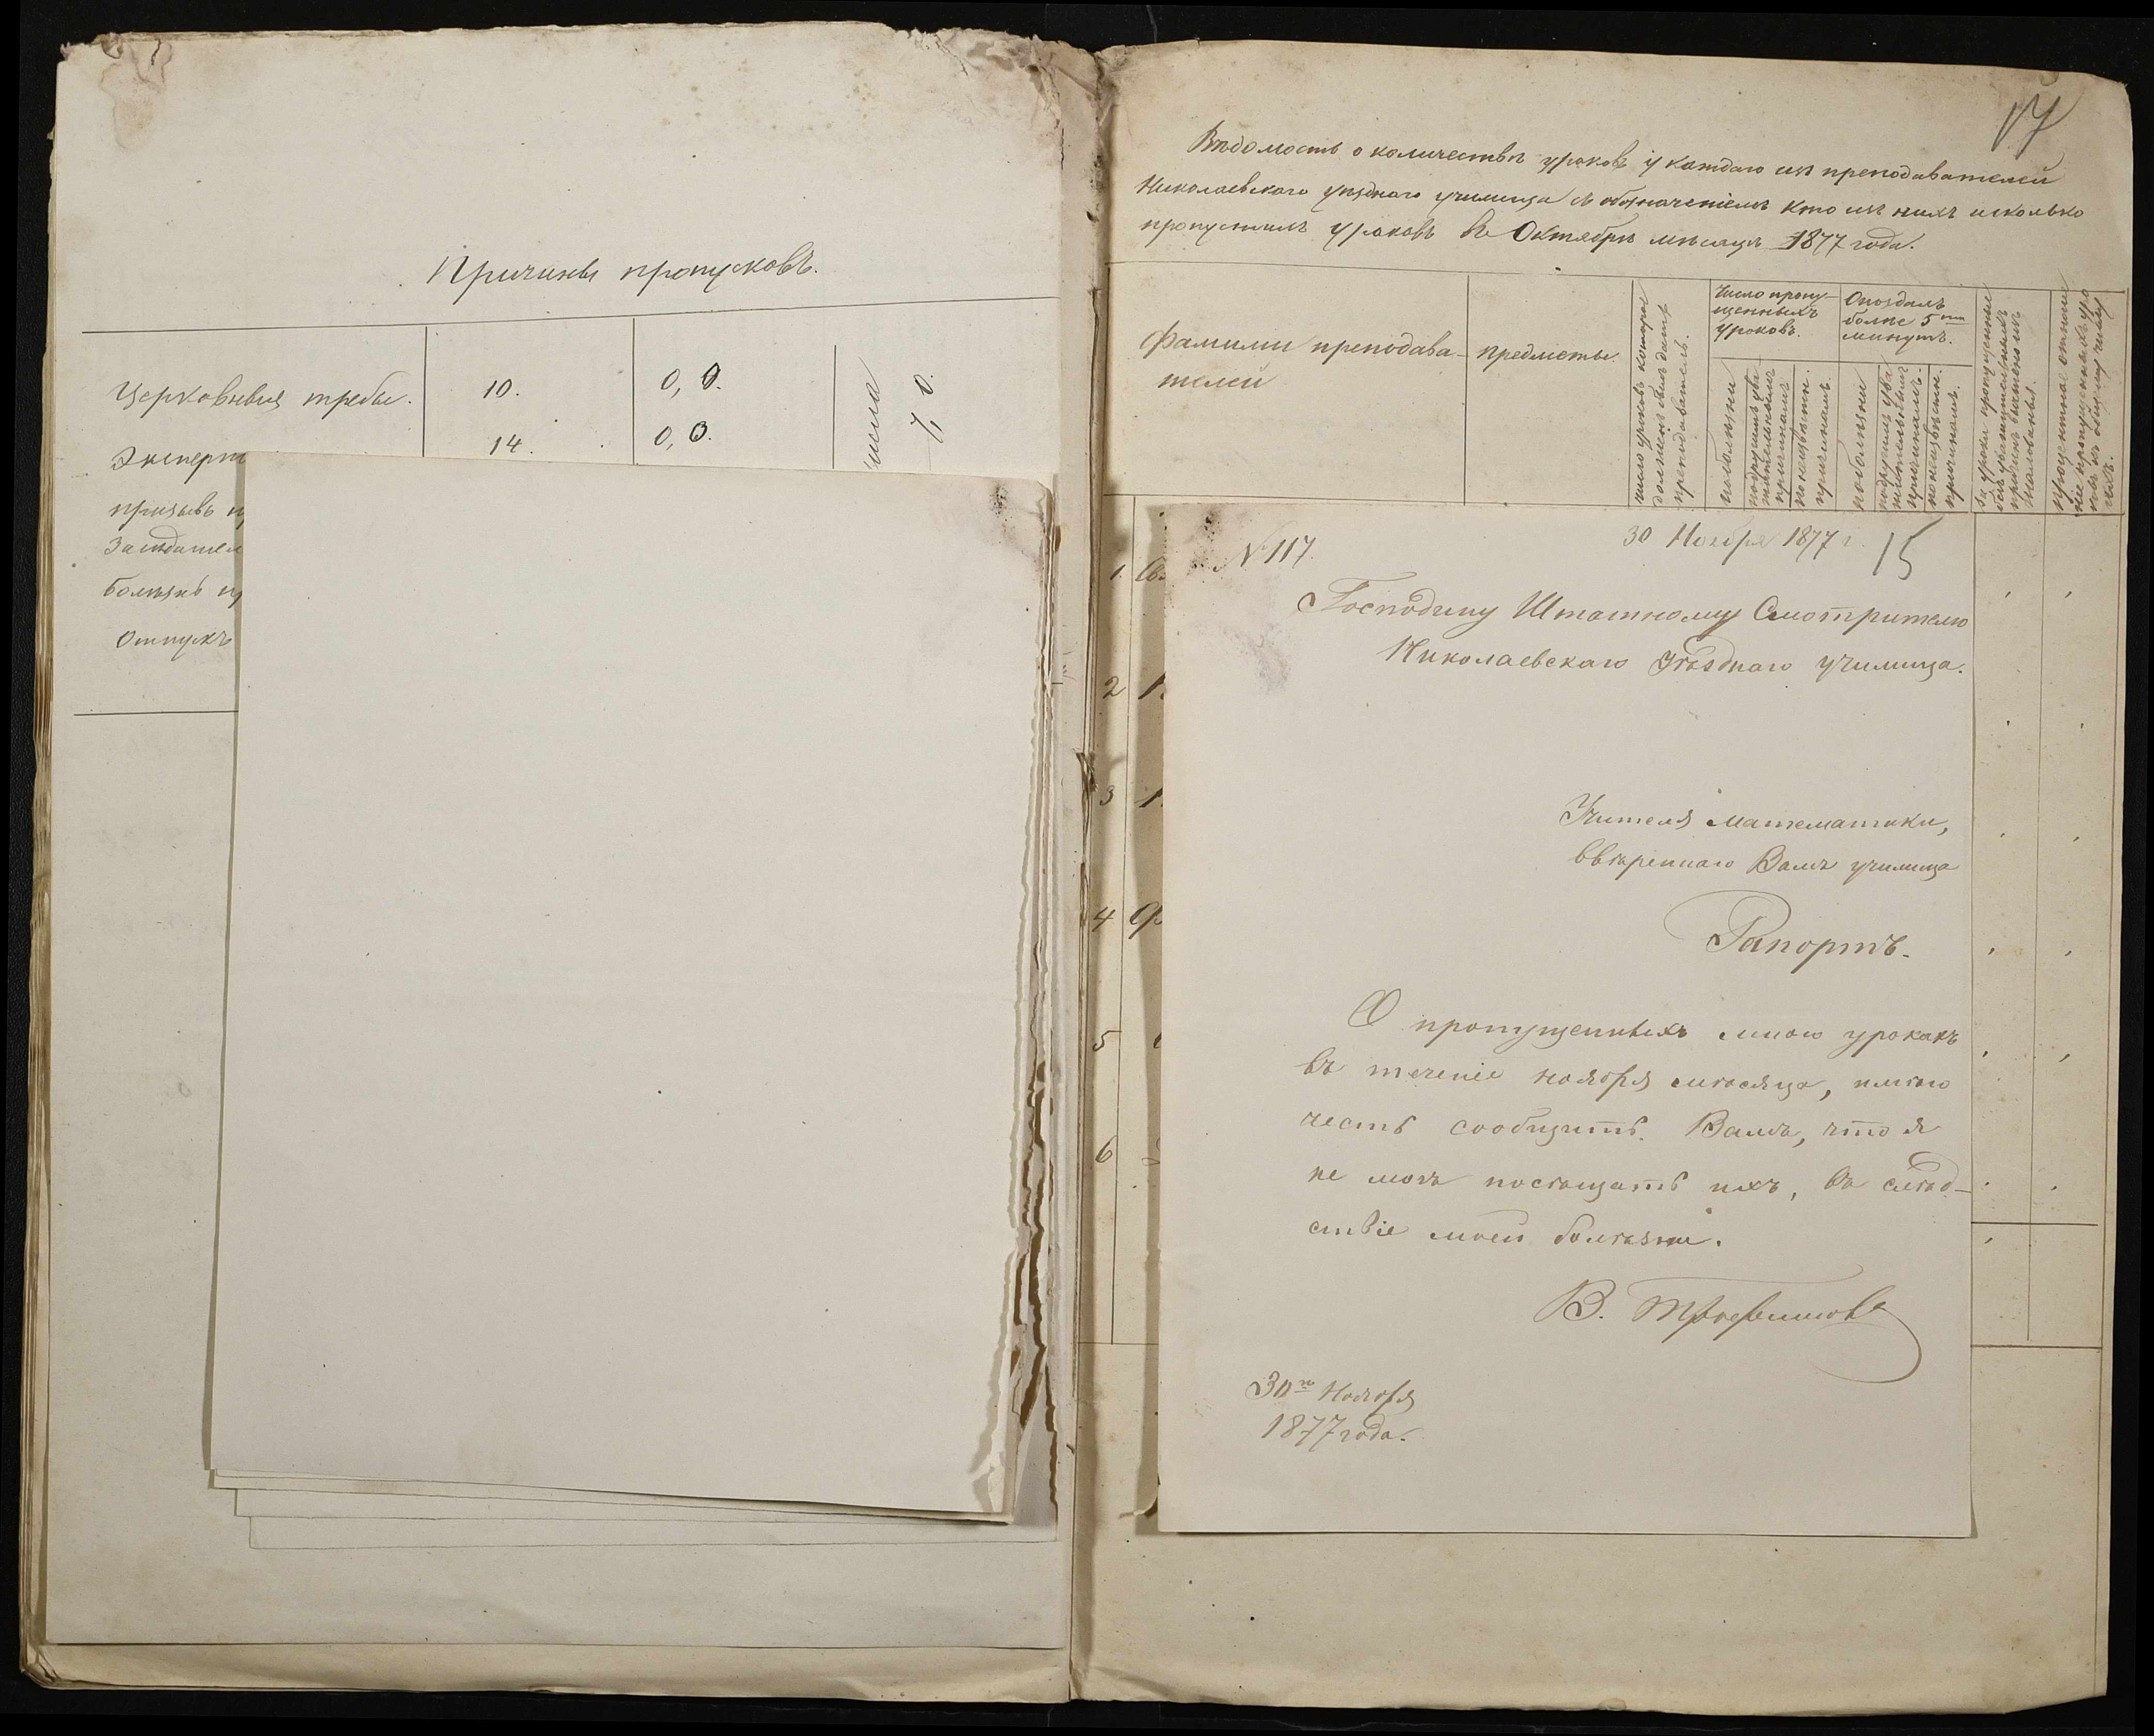 Причины пропусковъ.
Церковныя требы. 10. 0, 0.
14. 0, 0.
призывъ
Болѣзнь
Отпускъ
17
Вѣдомость о количествѣ уроковъ у каждаго изъ преподавателей
Николаевскаго уѣзднаго училища съ обозначеніемъ кто изъ нихъ и сколько
пропустилъ уроковъ въ Октябрѣ мѣсяцѣ 1877 года.
Фамиліи преподава-
телей
Предметы
число уроковъ которое
долженъ былъ дать
преподаватель.
Число пропу-
щенныхъ
уроковъ.
по болѣзни
по другимъ ува
жительнымъ
причинамъ
по неизвѣстн.
причинамъ.
Опоздалъ
болѣе 5ти
минутъ.
по болѣзни
по другимъ ува
жительнымъ
причинамъ.
по неизвѣстн.
причинамъ.
За уроки пропущенные
безъ уважительныхъ
причинъ вычтено изъ
жалованья.
Процентное отноше
ніе пропущенныхъ уро
ковъ къ общему числу
ихъ.
1.
2
3
4
5
6
№ 117.
30 Ноября 1877 г.
15
Господину Штатному Смотрителю
Николаевскаго Уѣзднаго училища.
Учителя математики,
ввѣреннаго Вамъ училища
Рапортъ.
О пропущенныхъ мною урокахъ
въ теченіе ноября мѣсяца, имѣю
честь сообщить Вамъ, что я
не могъ посѣщать ихъ, въ слѣд-
ствіе моей болѣзни.
В.
30го Ноября
1877 года.